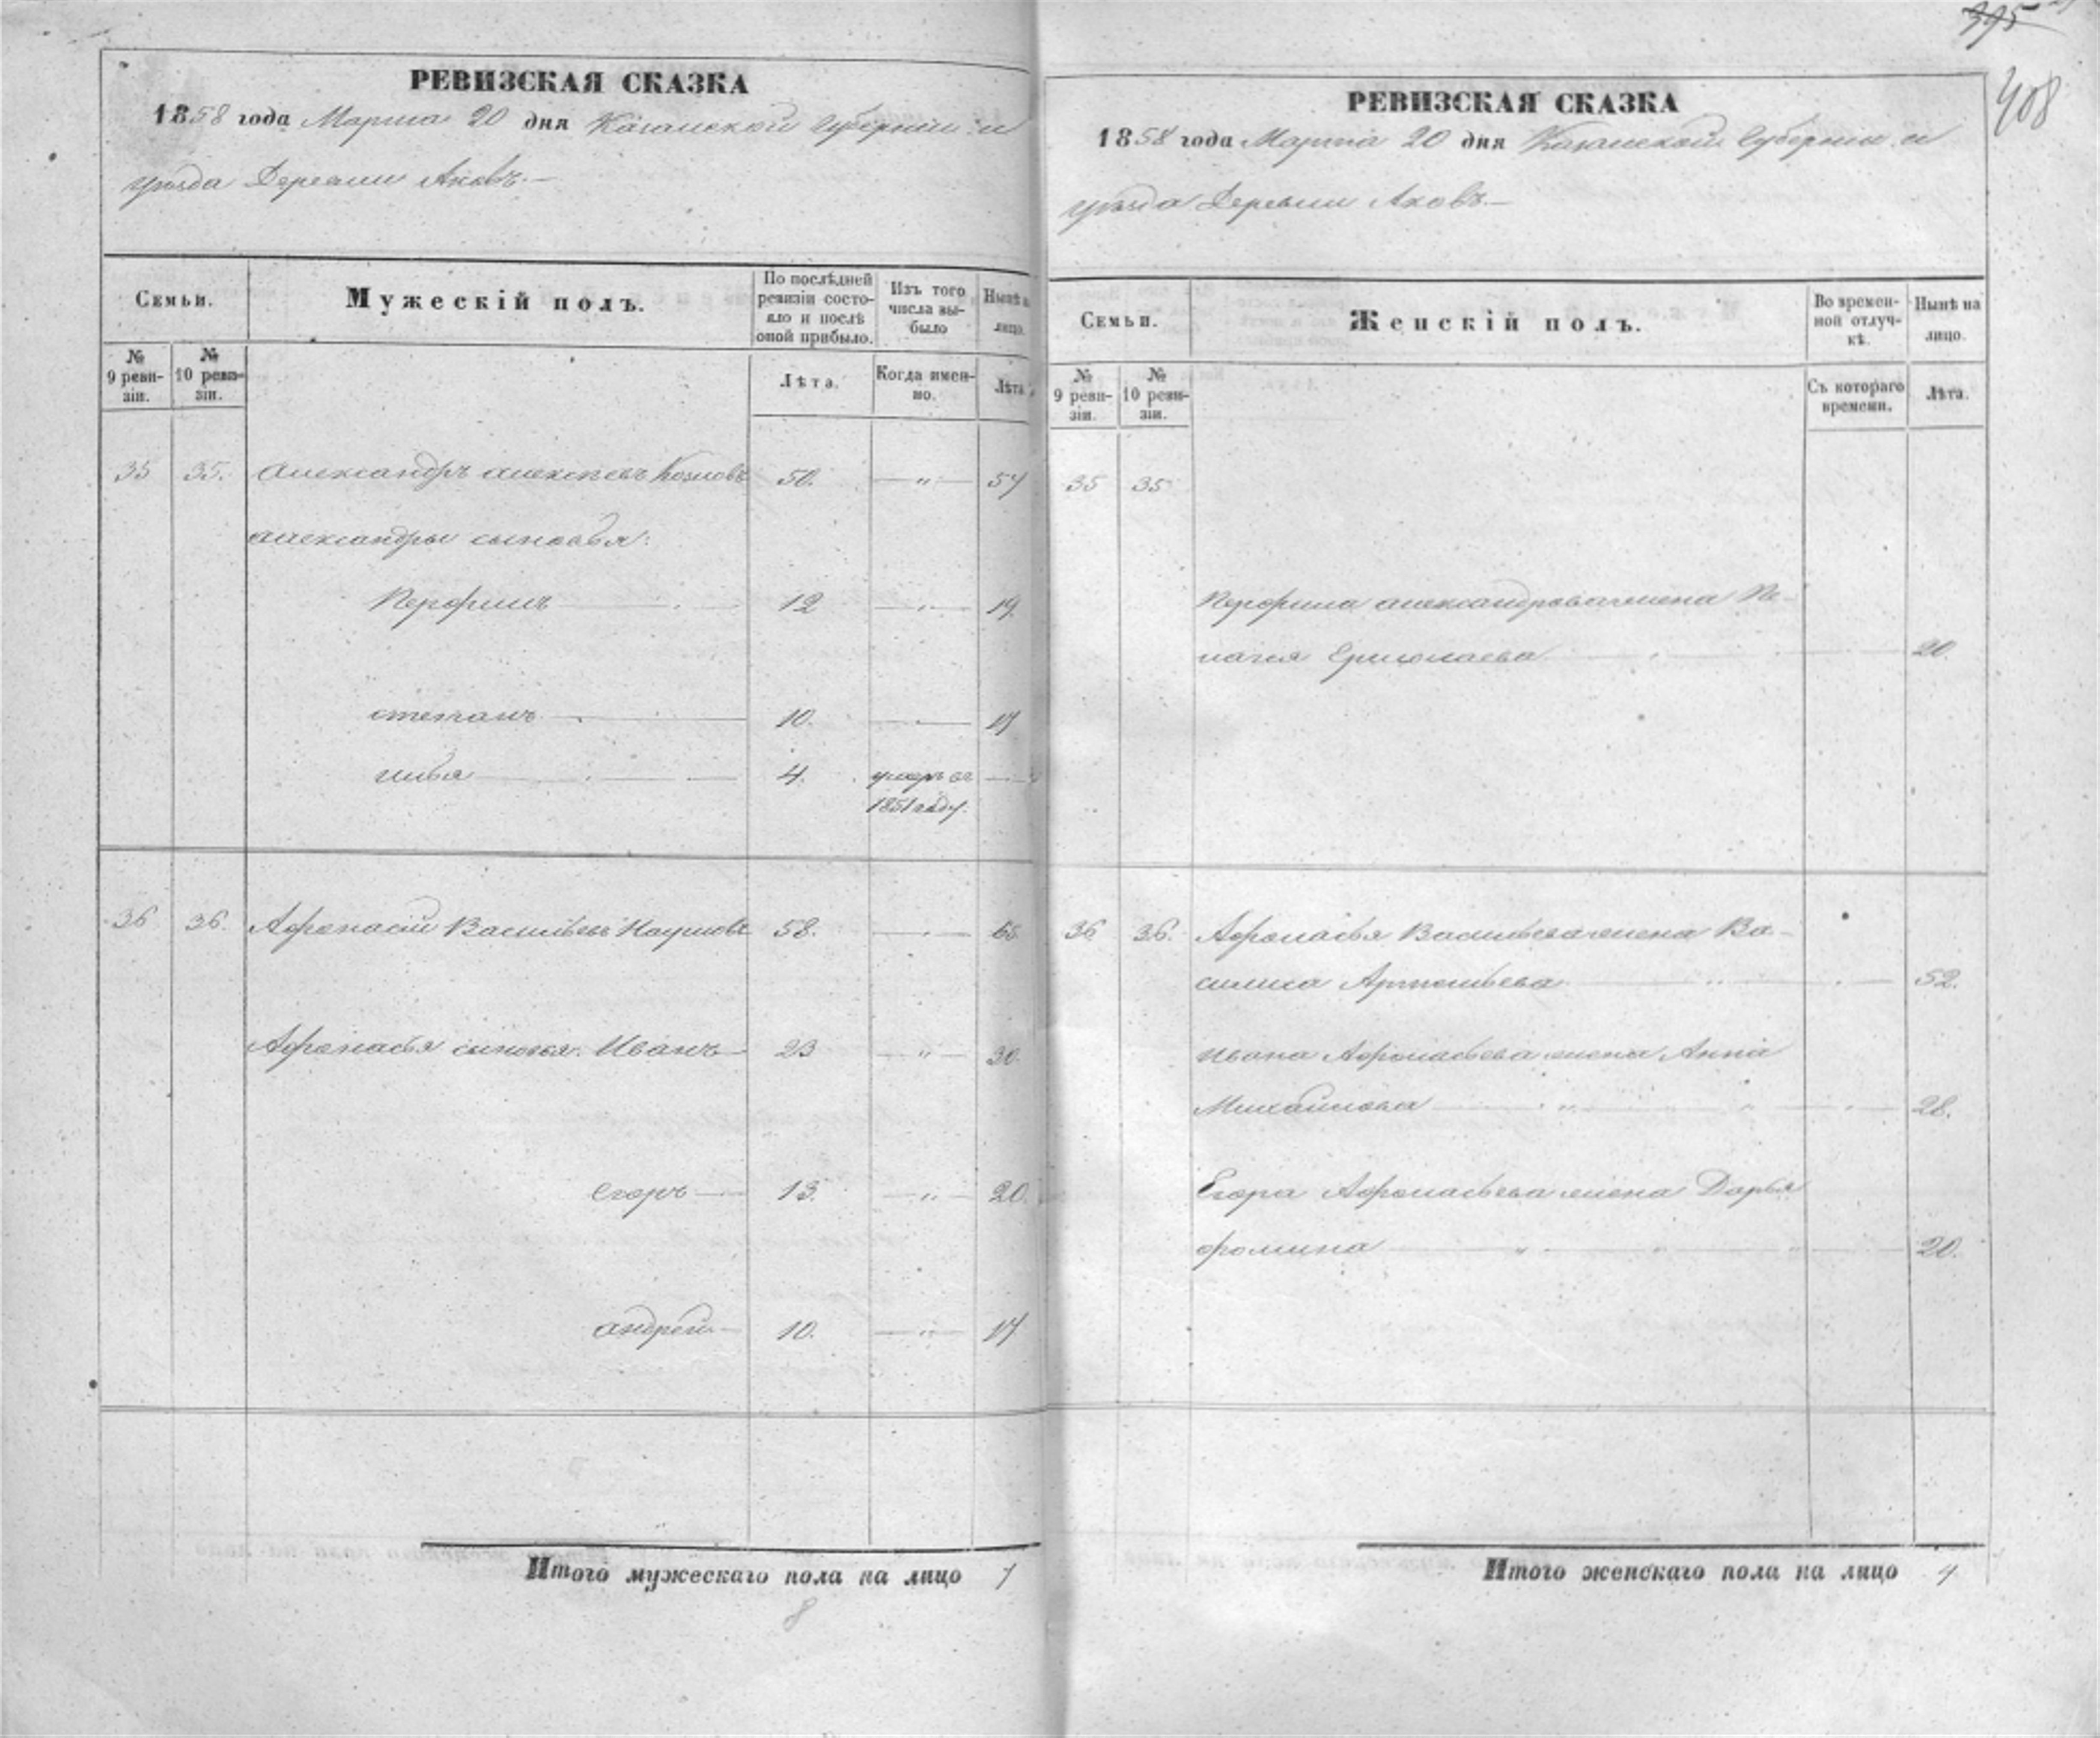 395
408
РЕВИЗСКАЯ СКАЗКА
1858 года Марта 20 дня Казанской Губерніи и
уѣзда Деревни Аковъ.—
Семьи.
Мужескій полъ.
По послѣдней ревизіи состояло и послѣ оной прибыло.
Изъ того числа выбыло
Нынѣ на лицо.
№ 9 ревизіи.
№ 10 ревизіи.
Лѣта.
Когда именно.
Лѣта
35 35. Александръ Алексѣевъ Козловъ 50. —„— 57
Александры сыновья:
Перфилъ 12 —„— 19.
Степанъ 10. —„— 17
Илья 4. умеръ въ —„—
1851 году.
36 36. Афонасій Васильевъ Наумовъ 58. —„— 65
Афонасья сыновья: Иванъ 23 —„— 30.
Егоръ 13. —„— 20.
Андрей 10. —„— 17
Итого мужескаго пола на лицо 7
8
РЕВИЗСКАЯ СКАЗКА
1858 года Марта 20 дня Казанской Губерніи и
уѣзда Деревни Аковъ.—
Семьи.
Женскій полъ.
Во временной отлучкѣ.
Нынѣ на лицо.
№ 9 ревизіи.
№ 10 ревизіи.
Съ котораго времени.
Лѣта.
35 35
Перфила Александрова жена Пе-
лагея Ермолаева 20.
36 36. Афонасья Васильева жена Ва-
силиса Артемьева 52.
Ивана Афонасьева жена Анна
Михайлова 28.
Егора Афонасьева жена Дарья
Фомина 20.
Итого женскаго пола на лицо 4